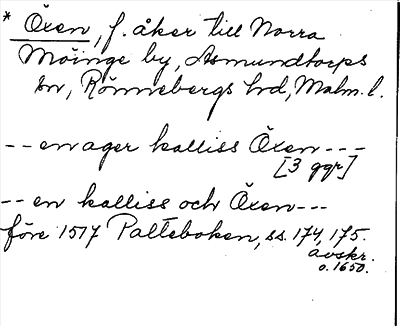 * Öxen, f. åker till Norra
Möinge by, Asmundtorps
sn, Rönnebergs hd, Malm. l.
-- en ager kalliss Öxen ---
[3 ggr]
-- en kalliss och Öxen ---
före 1517 Palteboken, ss. 174, 175.
avskr.
o. 1650.